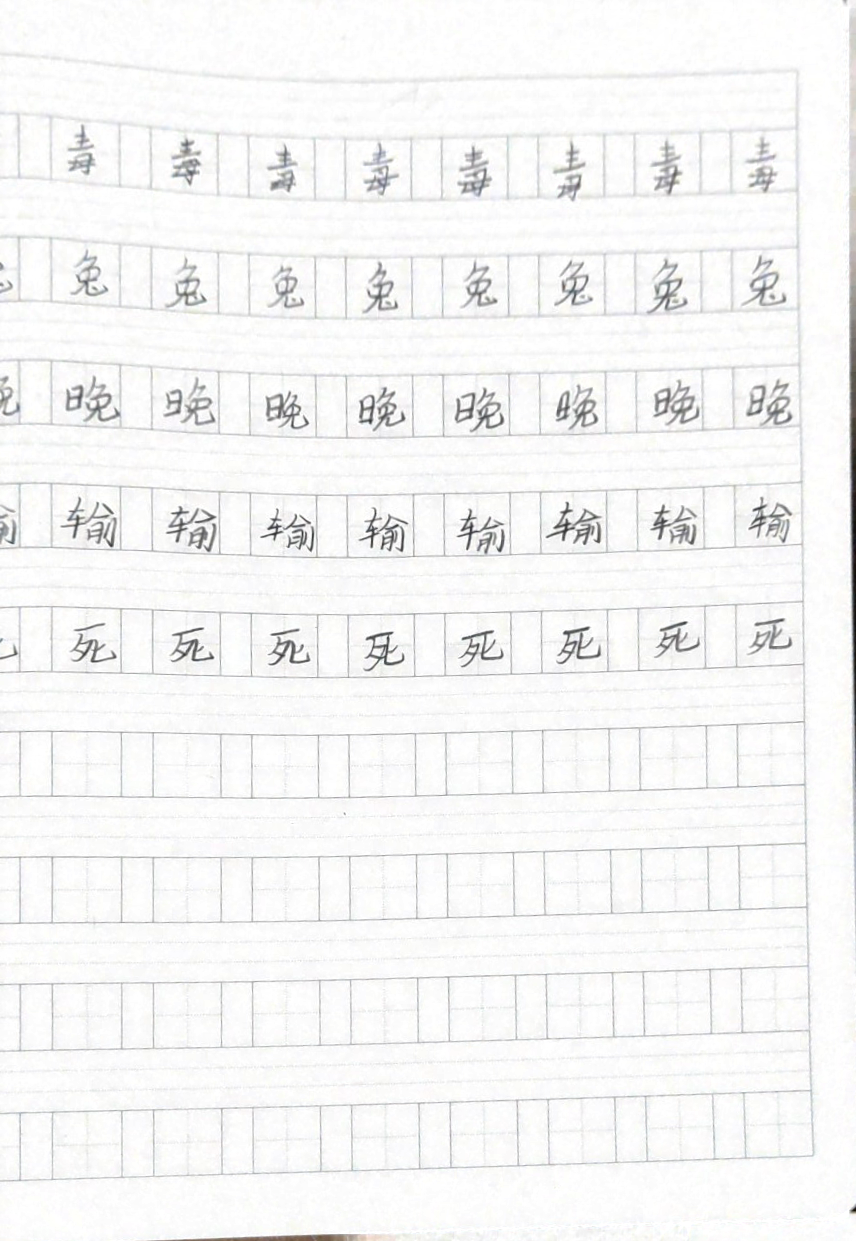 毒 毒 毒 毒 毒 毒 毒 毒
兔 兔 兔 兔 兔 兔 兔 兔
晚 晚 晚 晚 晚 晚 晚 晚
输 输 输 输 输 输 输 输
死 死 死 死 死 死 死 死